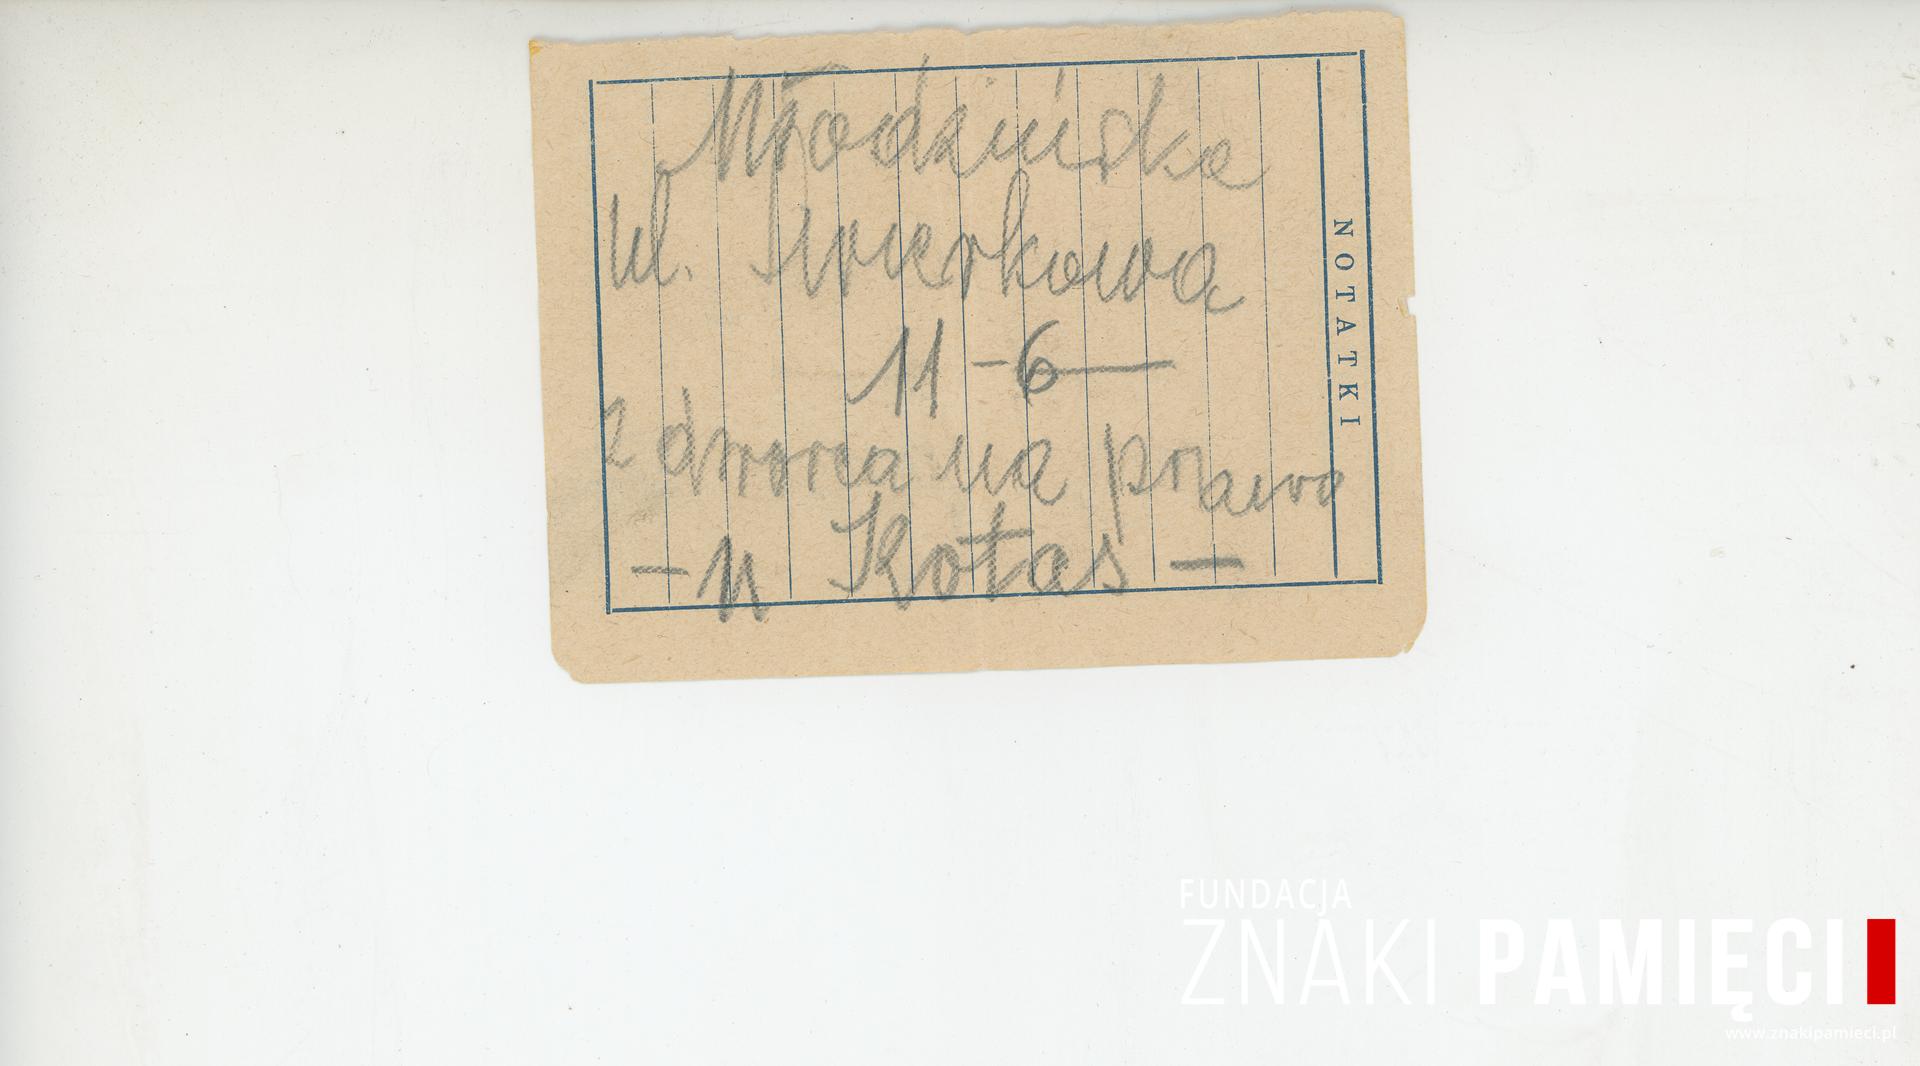 Młodzińska
ul. Świerkowa
11 - 6 —
z dworca na prawo
- u Kotas -
NOTATKI
FUNDACJA
ZNAKI PAMIĘCI
www.znakipamieci.pl